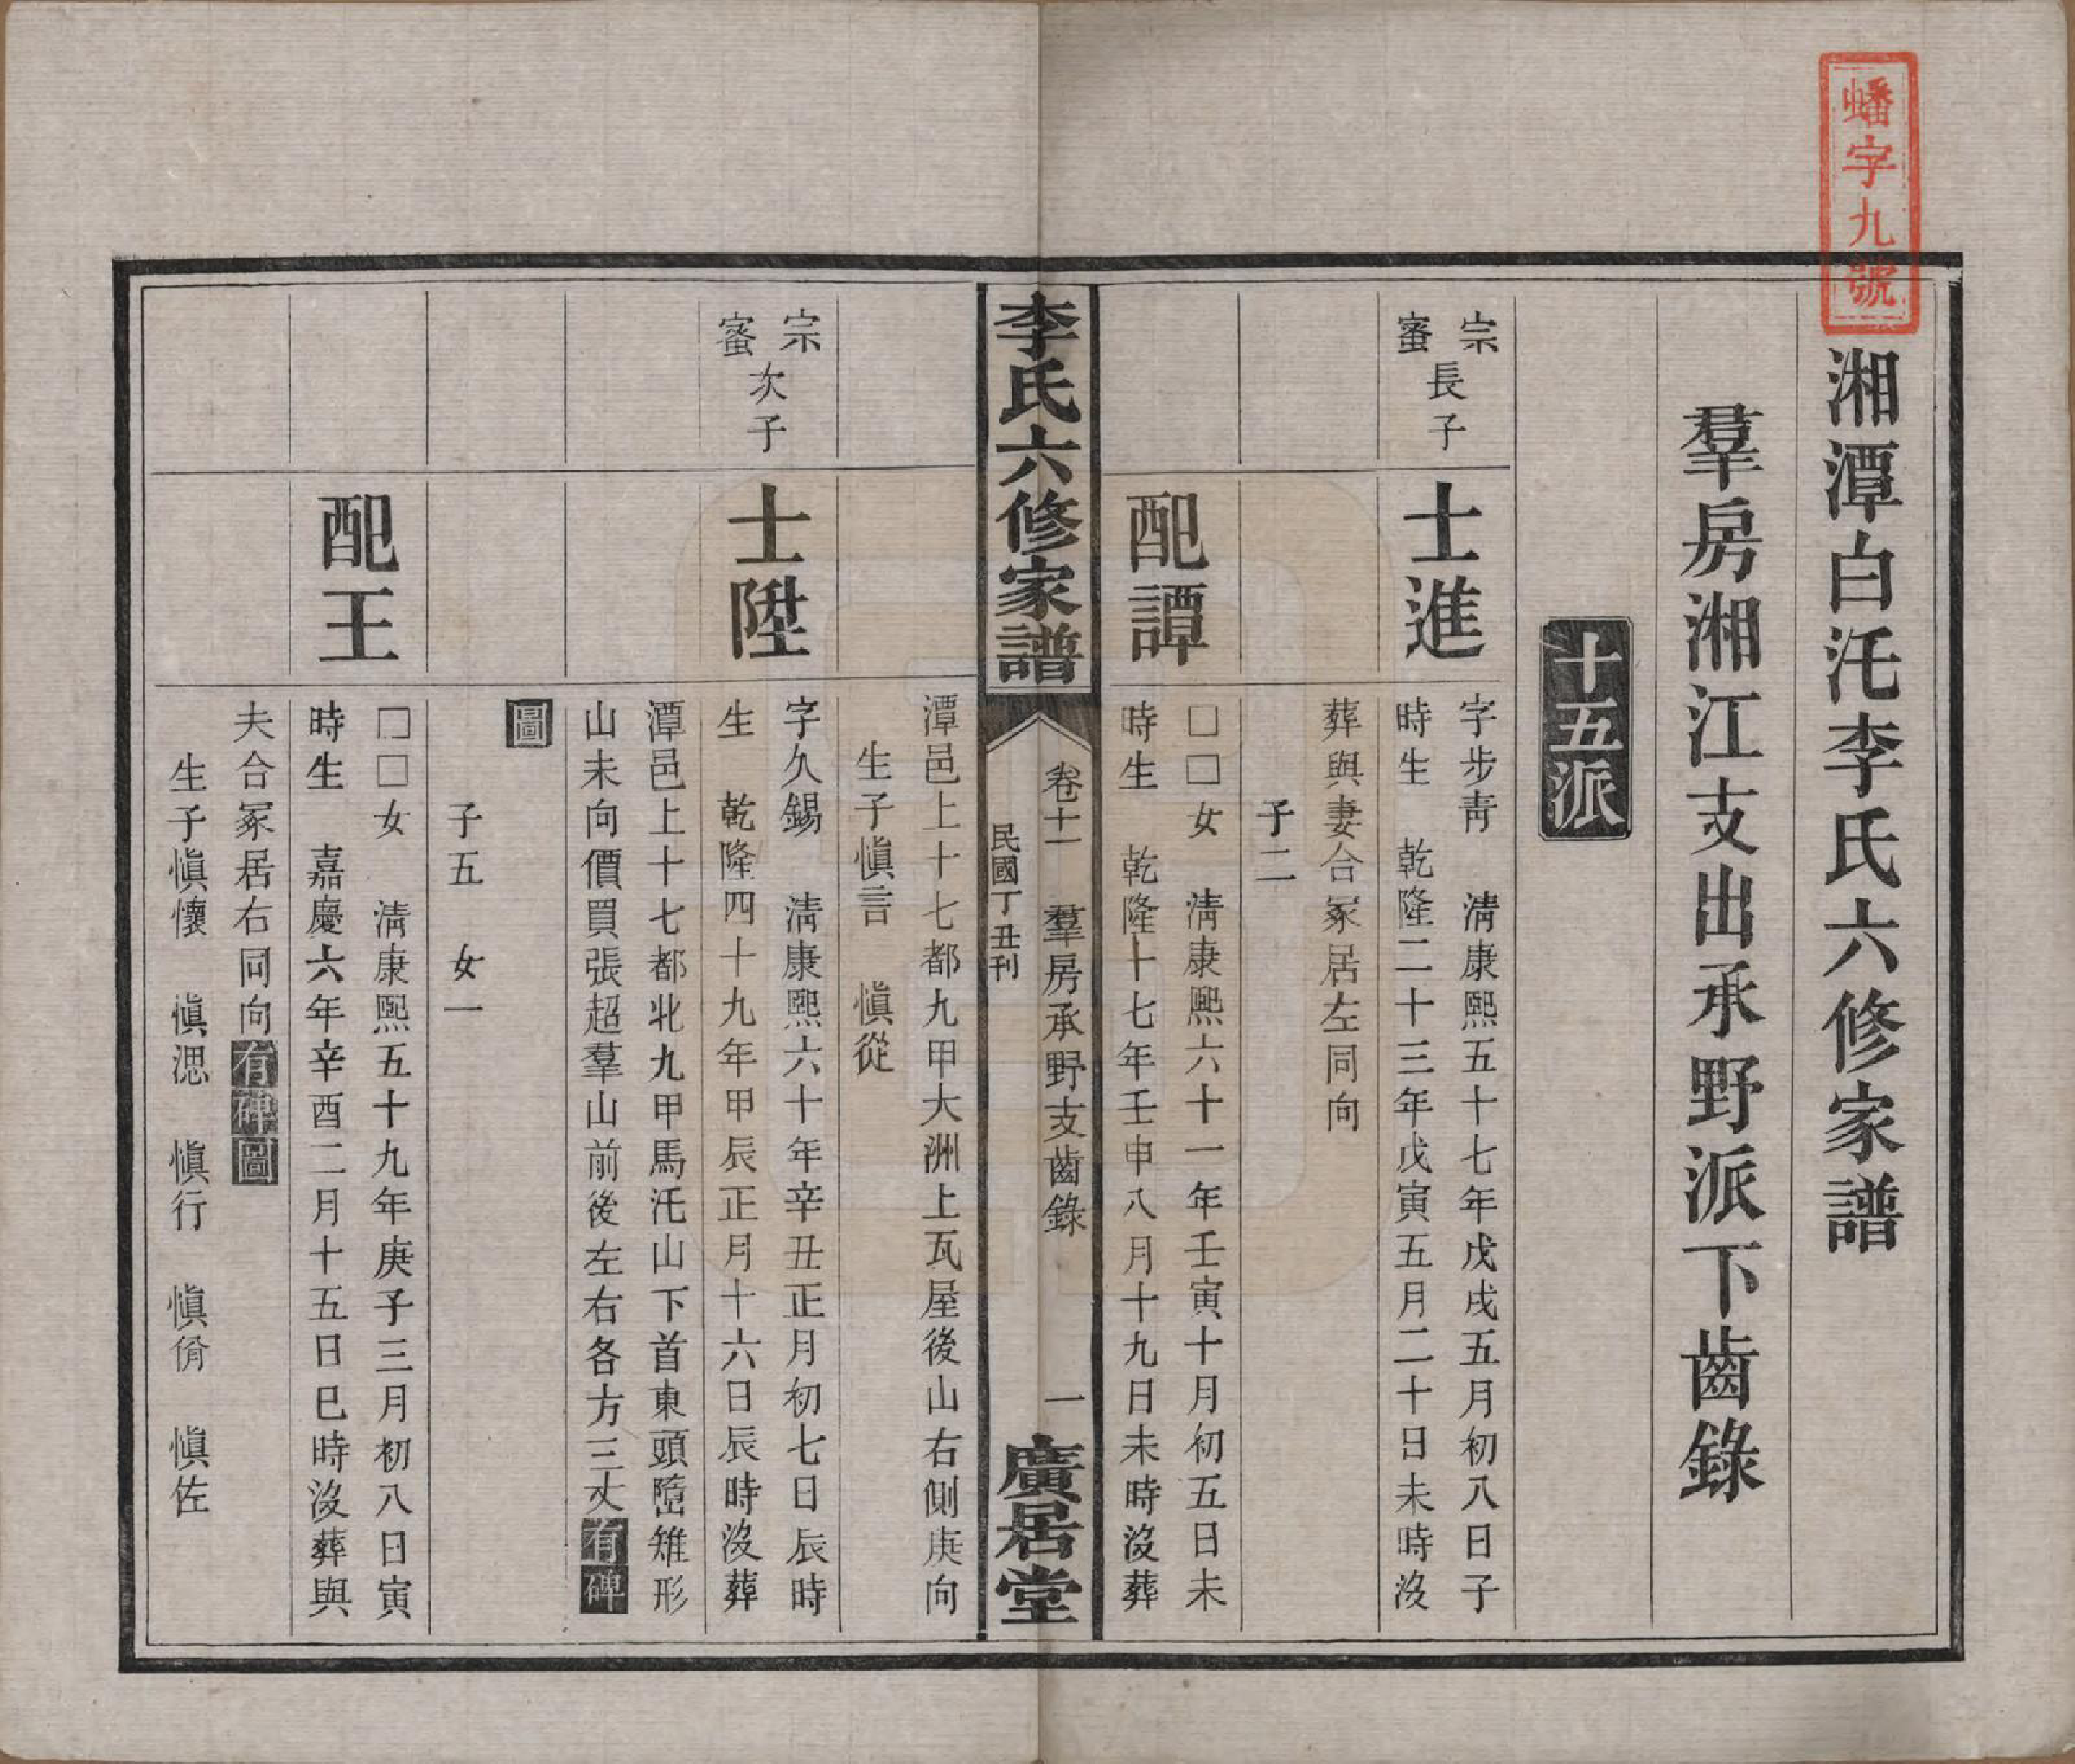 蟠字九號
湘潭白汑李氏六修家譜
羣房湘江支出承野派下齒錄
十五派
宗
蜜
長子
士進
字步靑　淸康熙五十七年戊戌五月初八日子
時生　乾隆二十三年戊寅五月二十日未時沒
葬與妻合冢居左同向
子二
配譚
□□女　淸康熙六十一年壬寅十月初五日未
時生　乾隆十七年壬申八月十九日未時沒葬
李氏六修家譜
卷十一　羣房承野支齒錄　一
民國丁丑刊
廣居堂
潭邑上十七都九甲大洲上瓦屋後山右側庚向
生子愼言　愼從
宗
蜜
次子
士陞
字久錫　淸康熙六十年辛丑正月初七日辰時
生　乾隆四十九年甲辰正月十六日辰時沒葬
潭邑上十七都北九甲馬汑山下首東頭墮雉形
山未向價買張超羣山前後左右各方三丈有碑
圖
子五　女一
配王
□□女　淸康熙五十九年庚子三月初八日寅
時生　嘉慶六年辛酉二月十五日巳時沒葬與
夫合冢居右同向有碑圖
生子愼懷　愼㴓　愼行　愼脩　愼佐